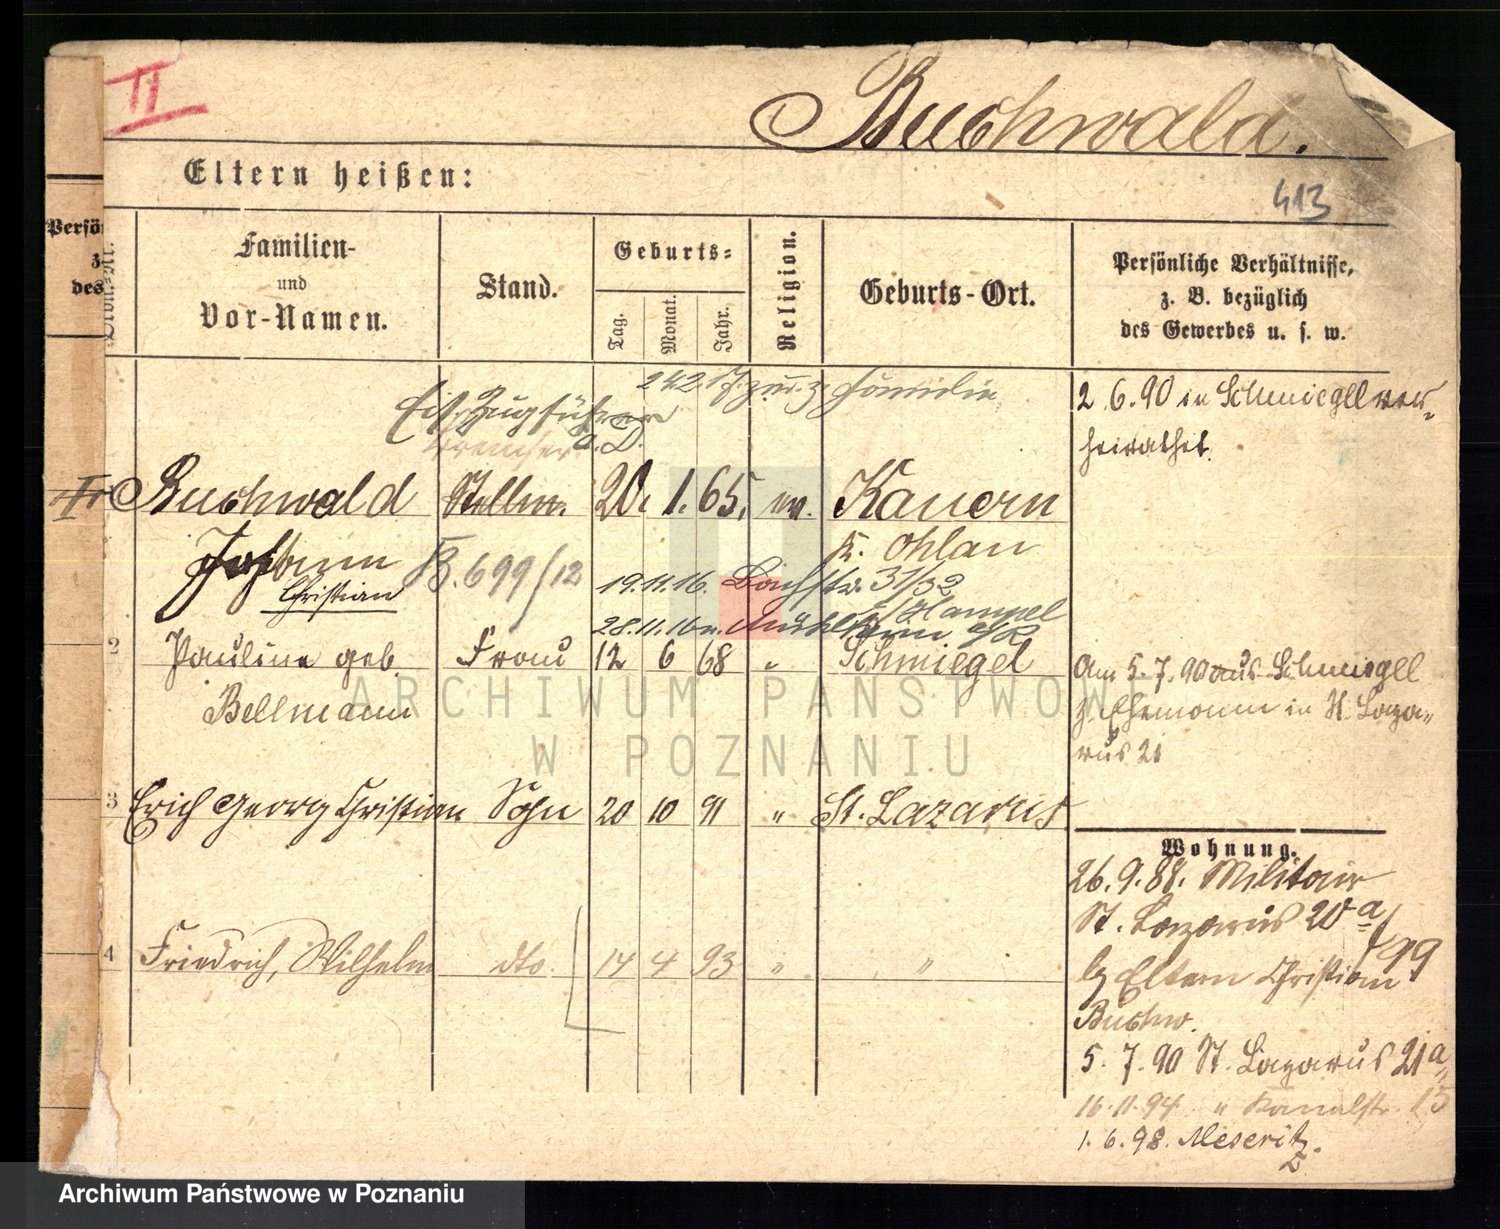 II
Buchwald.
Eltern heißen:
413
Persö
z
des
Familien-
und
Vor-Namen.
Stand.
Geburts-
Tag.
Monat.
Jahr.
Religion.
Geburts-Ort.
Persönliche Verhältnisse,
z. B. bezüglich
des Gewerbes u. s. w.
Eis. Zugführer
a. D.
2.6.90 in Schmiegel ver-
heirathet.
Buchwald Stellm. 20. 1. 65. ev. Kauern
Johann
Kr. Ohlau
Christian
B. 699/12
19.11.16. Bachstr. 31/32
b/Hampel
28.11.16 n.
2 Pauline geb. Frau 12 6 68 " Schmiegel
Bellmann
Am 5.7.90 aus Schmiegel
z. Ehemann in St. Laza-
rus 21
3 Erich Georg Christian Sohn 20 10 91 " St. Lazarus
4 Friedrich, Wilhelm dto. 14 4 93 " "
Wohnung.
26.9.88. Militair
St. Lazarus 20 a/
b/ Eltern Christian
Buchw.
5.7.90 St. Lazarus 21a
16.11.94 " Kanalstr. 15
1.6.98. Meseritz.
ARCHIWUM PAŃSTWOWE
W POZNANIU
Archiwum Państwowe w Poznaniu